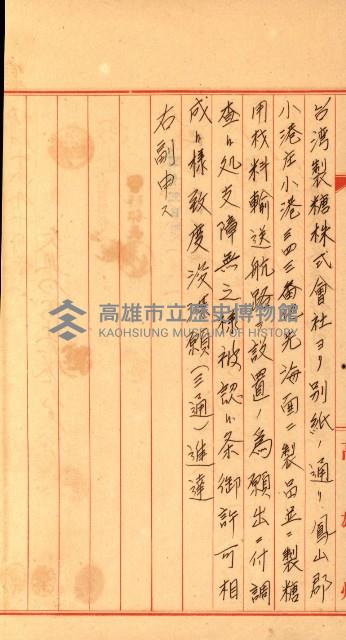 台湾製糖株式會社ヨリ別紙ノ通リ鳳山郡
小港庄小港三四三番地先海面ニ製品並ニ製糖
用材料輸送航路ヲ設置ノ為願出ニ付調
査候処支障無之様被認候条御許可相
成候様致度浚渫願(三通)進達
右副申ス
高雄市立歷史博物館
KAOHSIUNG MUSEUM OF HISTORY
高雄州